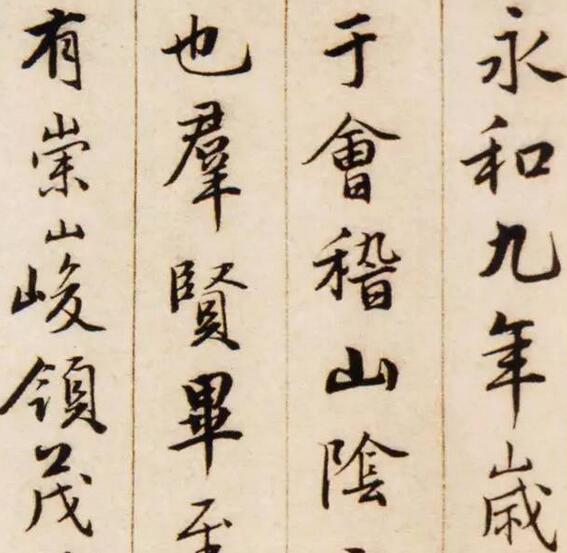 永和九年歲
于會稽山陰
也羣賢畢至
有崇山峻領茂